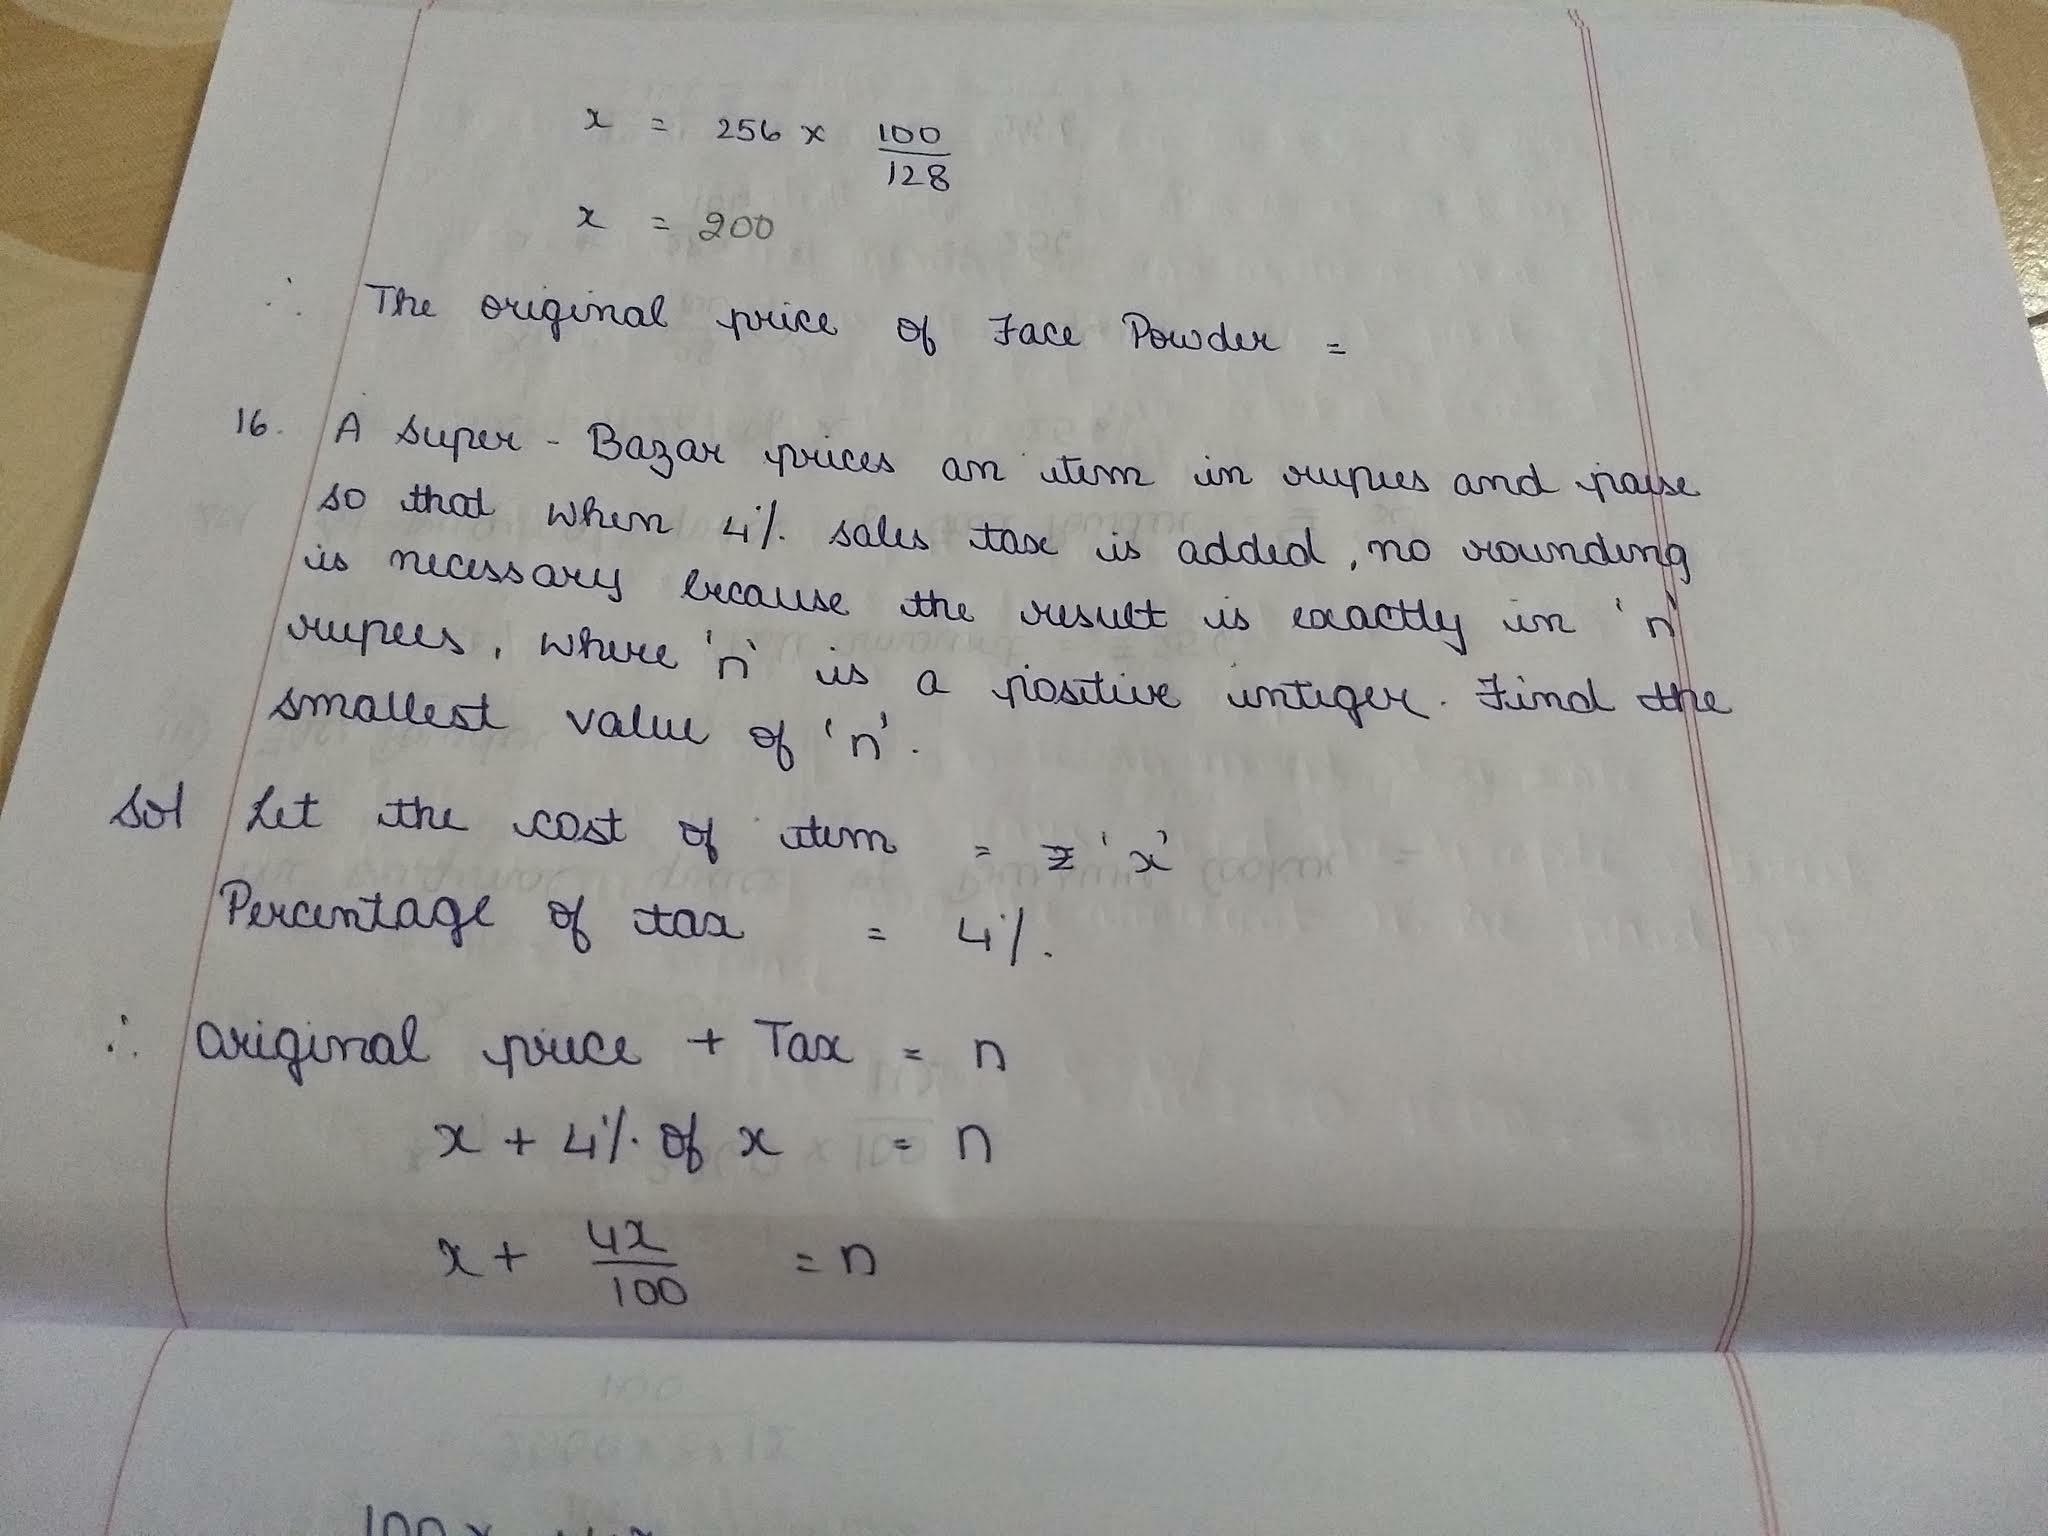 x = 256 × 100/128
x = 200
∴ The original price of Face Powder =
16. A super - Bazar prices an item in rupees and paise
so that when 4% sales tax is added, no rounding
is necessary because the result is exactly in 'n'
rupees, where 'n' is a positive integer. Find the
smallest value of 'n'.
Sol Let the cost of item = 'x'
Percentage of tax = 4%.
∴ original price + Tax = n
x + 4% of x = n
x + 4x/100 = n